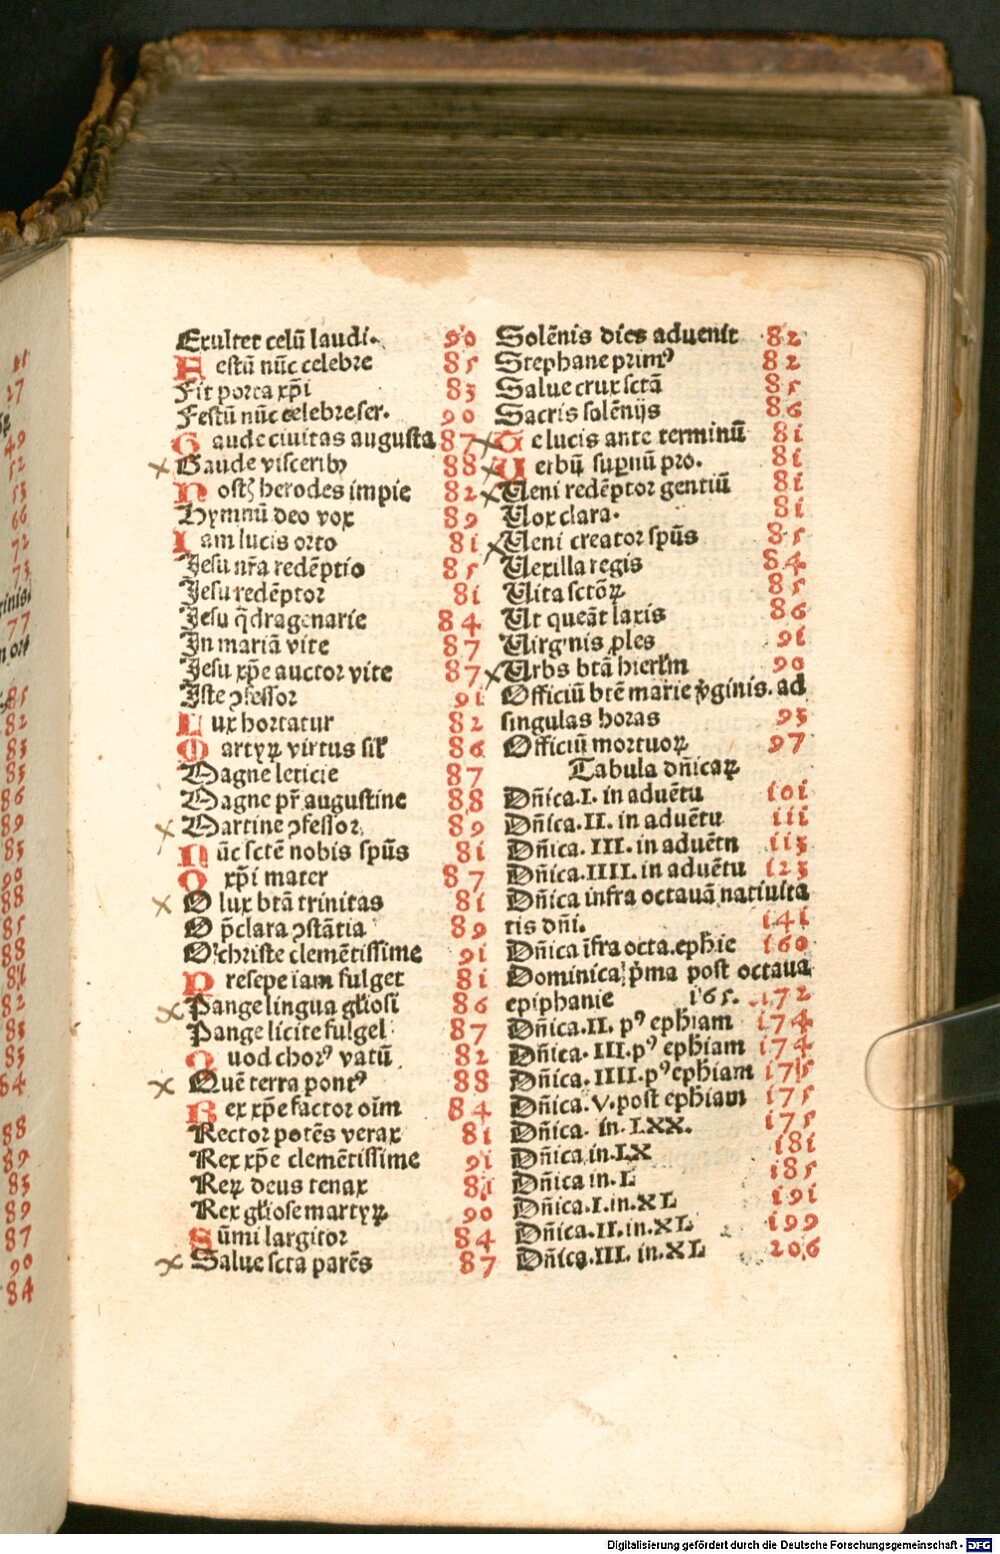 Exultet celū laudi. 90
Festū nūc celebre 85
Fit porta xp̄i 83
Festū nūc celebre ser. 90
Gaude ciuitas augusta 87
Gaude visceribꝫ 88
Hostꝫ herodes impie 82
Hymnū deo vox 89
Iam lucis orto 81
Jesu nr̄a redēptio 85
Jesu redēptor 81
Jesu q̄dragenarie 84
In mariā vite 87
Jesu xp̄e auctor vite 87
Iste ꝯfessor 91
Lux hortatur 82
Martyꝝ virtus sil̄ 86
Magne leticie 87
Magne pr̄ augustine 88
Martine ꝯfessor 89
Nūc sctēn nobis sp̄us 81
O xp̄i mater 87
O lux btā trinitas 81
O p̄clara ꝯstātia 89
O christe clemētissime 91
Presepe iam fulget 81
Pange lingua gl̄iosi 86
Pange licite fulgel 87
Quod chorꝰ vatū 82
Quē terra pontꝰ 88
Rex xp̄e factor oīm 84
Rector potēs verax 81
Rex xp̄e clemētissime 91
Reꝝ deus tenax 81
Rex gl̄iose martyꝝ 90
Sūmi largitor 84
Salue scta parēs 87
Solēnis dies aduenit 82
Stephane primꝰ 82
Salue crux sctā 85
Sacris solēnijs 86
Te lucis ante terminū 81
Uerbū suꝑnū pro. 81
Ueni redēptor gentiū 81
Uox clara. 81
Ueni creator sp̄us 85
Uexilla regis 84
Uita sctōꝝ 85
Ut queāt laxis 86
Uirgīnis ꝓles 91
Urbs btā hierl̄m 90
Officiū btē marie v̄ginis. ad
singulas horas 93
Officiū mortuoꝝ 97
Tabula dn̄icaꝝ
Dn̄ica.I. in aduētu 101
Dn̄ica.II. in aduētu 111
Dn̄ica. III. in aduētn 113
Dn̄ica.IIII. in aduētu 123
Dn̄ica infra octauā natiuita
tis dn̄i. 141
Dn̄ica īfra octa.eph̄ie 160
Dominica p̄ma post octaua
epiphanie 165. 172
Dn̄ica.II. pꝰ eph̄iam 174
Dn̄ica. III.pꝰ eph̄iam 174
Dn̄ica. IIII.pꝰ eph̄iam 175
Dn̄ica.V.post eph̄iam 175
Dn̄ica. in.LXX. 175
Dn̄ica in.LX 181
Dn̄ica in.L 185
Dn̄ica.I.in.XL 191
Dn̄ica.II.in.XL 199
Dn̄ica.III. in.XL 206
Digitalisierung gefördert durch die Deutsche Forschungsgemeinschaft - DFG